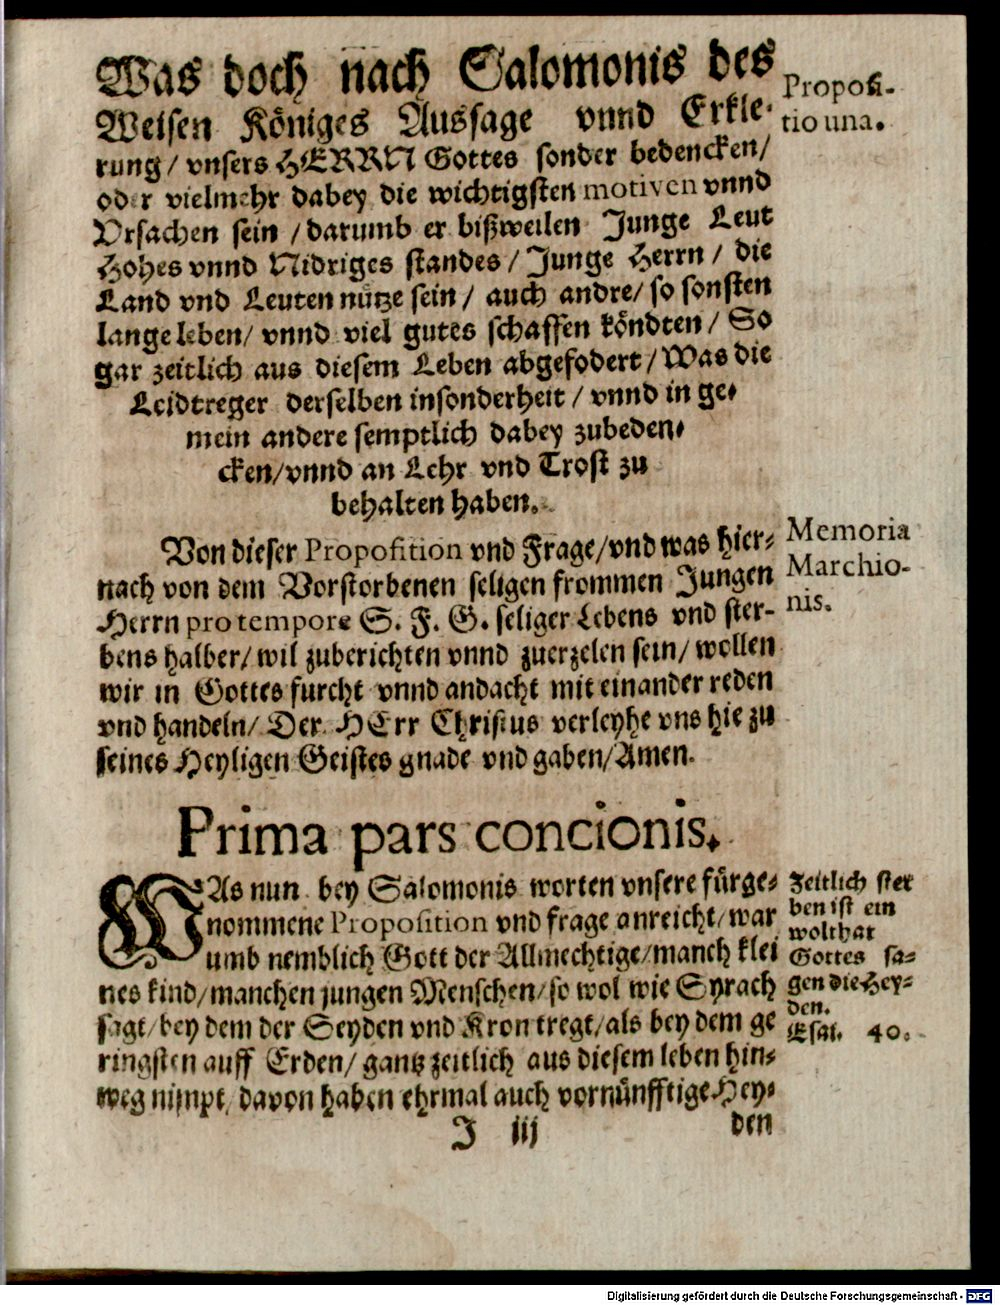 Was doch nach Salomonis des
Weisen Königes Aussage vnnd Erkle-
rung/ vnsers HERRN Gottes sonder bedencken/
oder vielmehr dabey die wichtigsten motiven vnnd
Vrsachen sein / darumb er bißweilen Junge Leut
Hohes vnnd Nidriges standes / Junge Herrn / die
Land vnd Leuten nütze sein / auch andre/ so sonsten
lange leben/ vnnd viel gutes schaffen köndten / So
gar zeitlich aus diesem Leben abgefodert / Was die
Leidtreger derselben insonderheit / vnnd in ge-
mein andere semptlich dabey zubeden-
cken/vnnd an Lehr vnd Trost zu
behalten haben.
Proposi-
tio una.
Von dieser Proposition vnd Frage/vnd was hier-
nach von dem Vorstorbenen seligen frommen Jungen
Herrn pro tempore S. F. G. seliger Lebens vnd ster-
bens halber/ wil zuberichten vnnd zuerzelen sein/ wollen
wir in Gottes furcht vnnd andacht mit einander reden
vnd handeln/ Der HErr Christus verleyhe vns hie zu
seines Heyligen Geistes gnade vnd gaben/Amen.
Memoria
Marchio-
nis.
Prima pars concionis.
WAs nun bey Salomonis worten vnsere fürge-
nommene Proposition vnd frage anreicht/ war
umb nemblich Gott der Allmechtige/manch klei
nes kind/manchen jungen Menschen/so wol wie Syrach
sagt/ bey dem der Seyden vnd Kron tregt/als bey dem ge
ringsten auff Erden/ gantz zeitlich aus diesem leben hin-
weg nimpt, davon haben ehrmal auch vornünfftige Hey-
Zeitlich ster
ben ist ein
wolthat
Gottes sa-
gen die Hey-
den.
Esai. 40.
J iij den
Digitalisierung gefördert durch die Deutsche Forschungsgemeinschaft - DFG